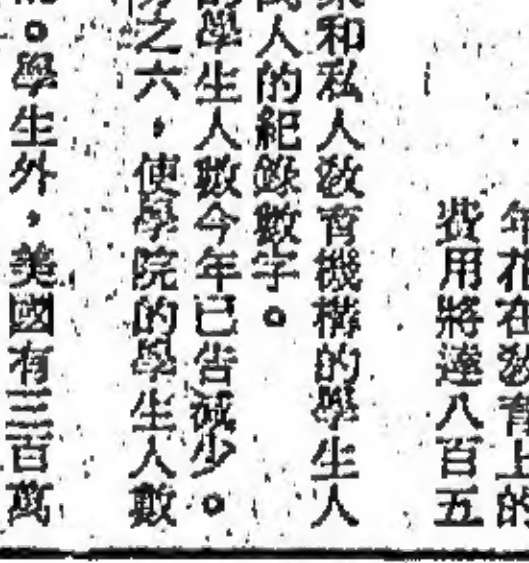 年花在教育上的
費用將達八百五
和私人教育機構的學生人
萬人的紀錄數字。
的學生人數今年已告減少。
之六，使學院的學生人數
。學生外，美國有三百萬